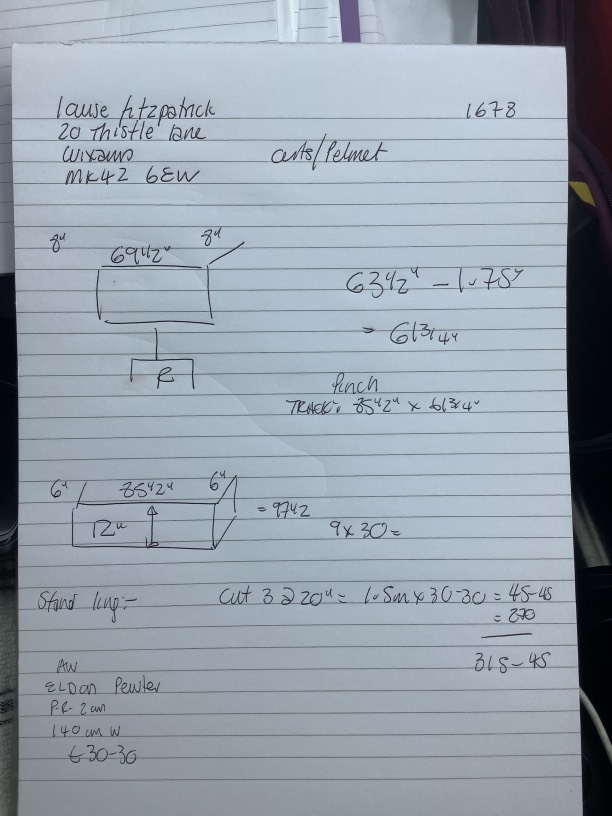 lause fitzpatrick
1678
20 Thistle lane
wixams
crts/Pelmet
MK42 6EW
8"
69 1/2"
8"
63 1/2" - 1.75"
= 61 3/4"
R
Pinch
TRACK: 85 1/2" x 61 3/4"
6"
85 1/2"
6"
= 97 1/2
12"
9 x 30 =
cut 3 @ 20" = 1.5m x 30-30 = 45-45
= 270
315-45
AW
ELDan Pewter
P.R- 2cm
140 cm W
£30-30